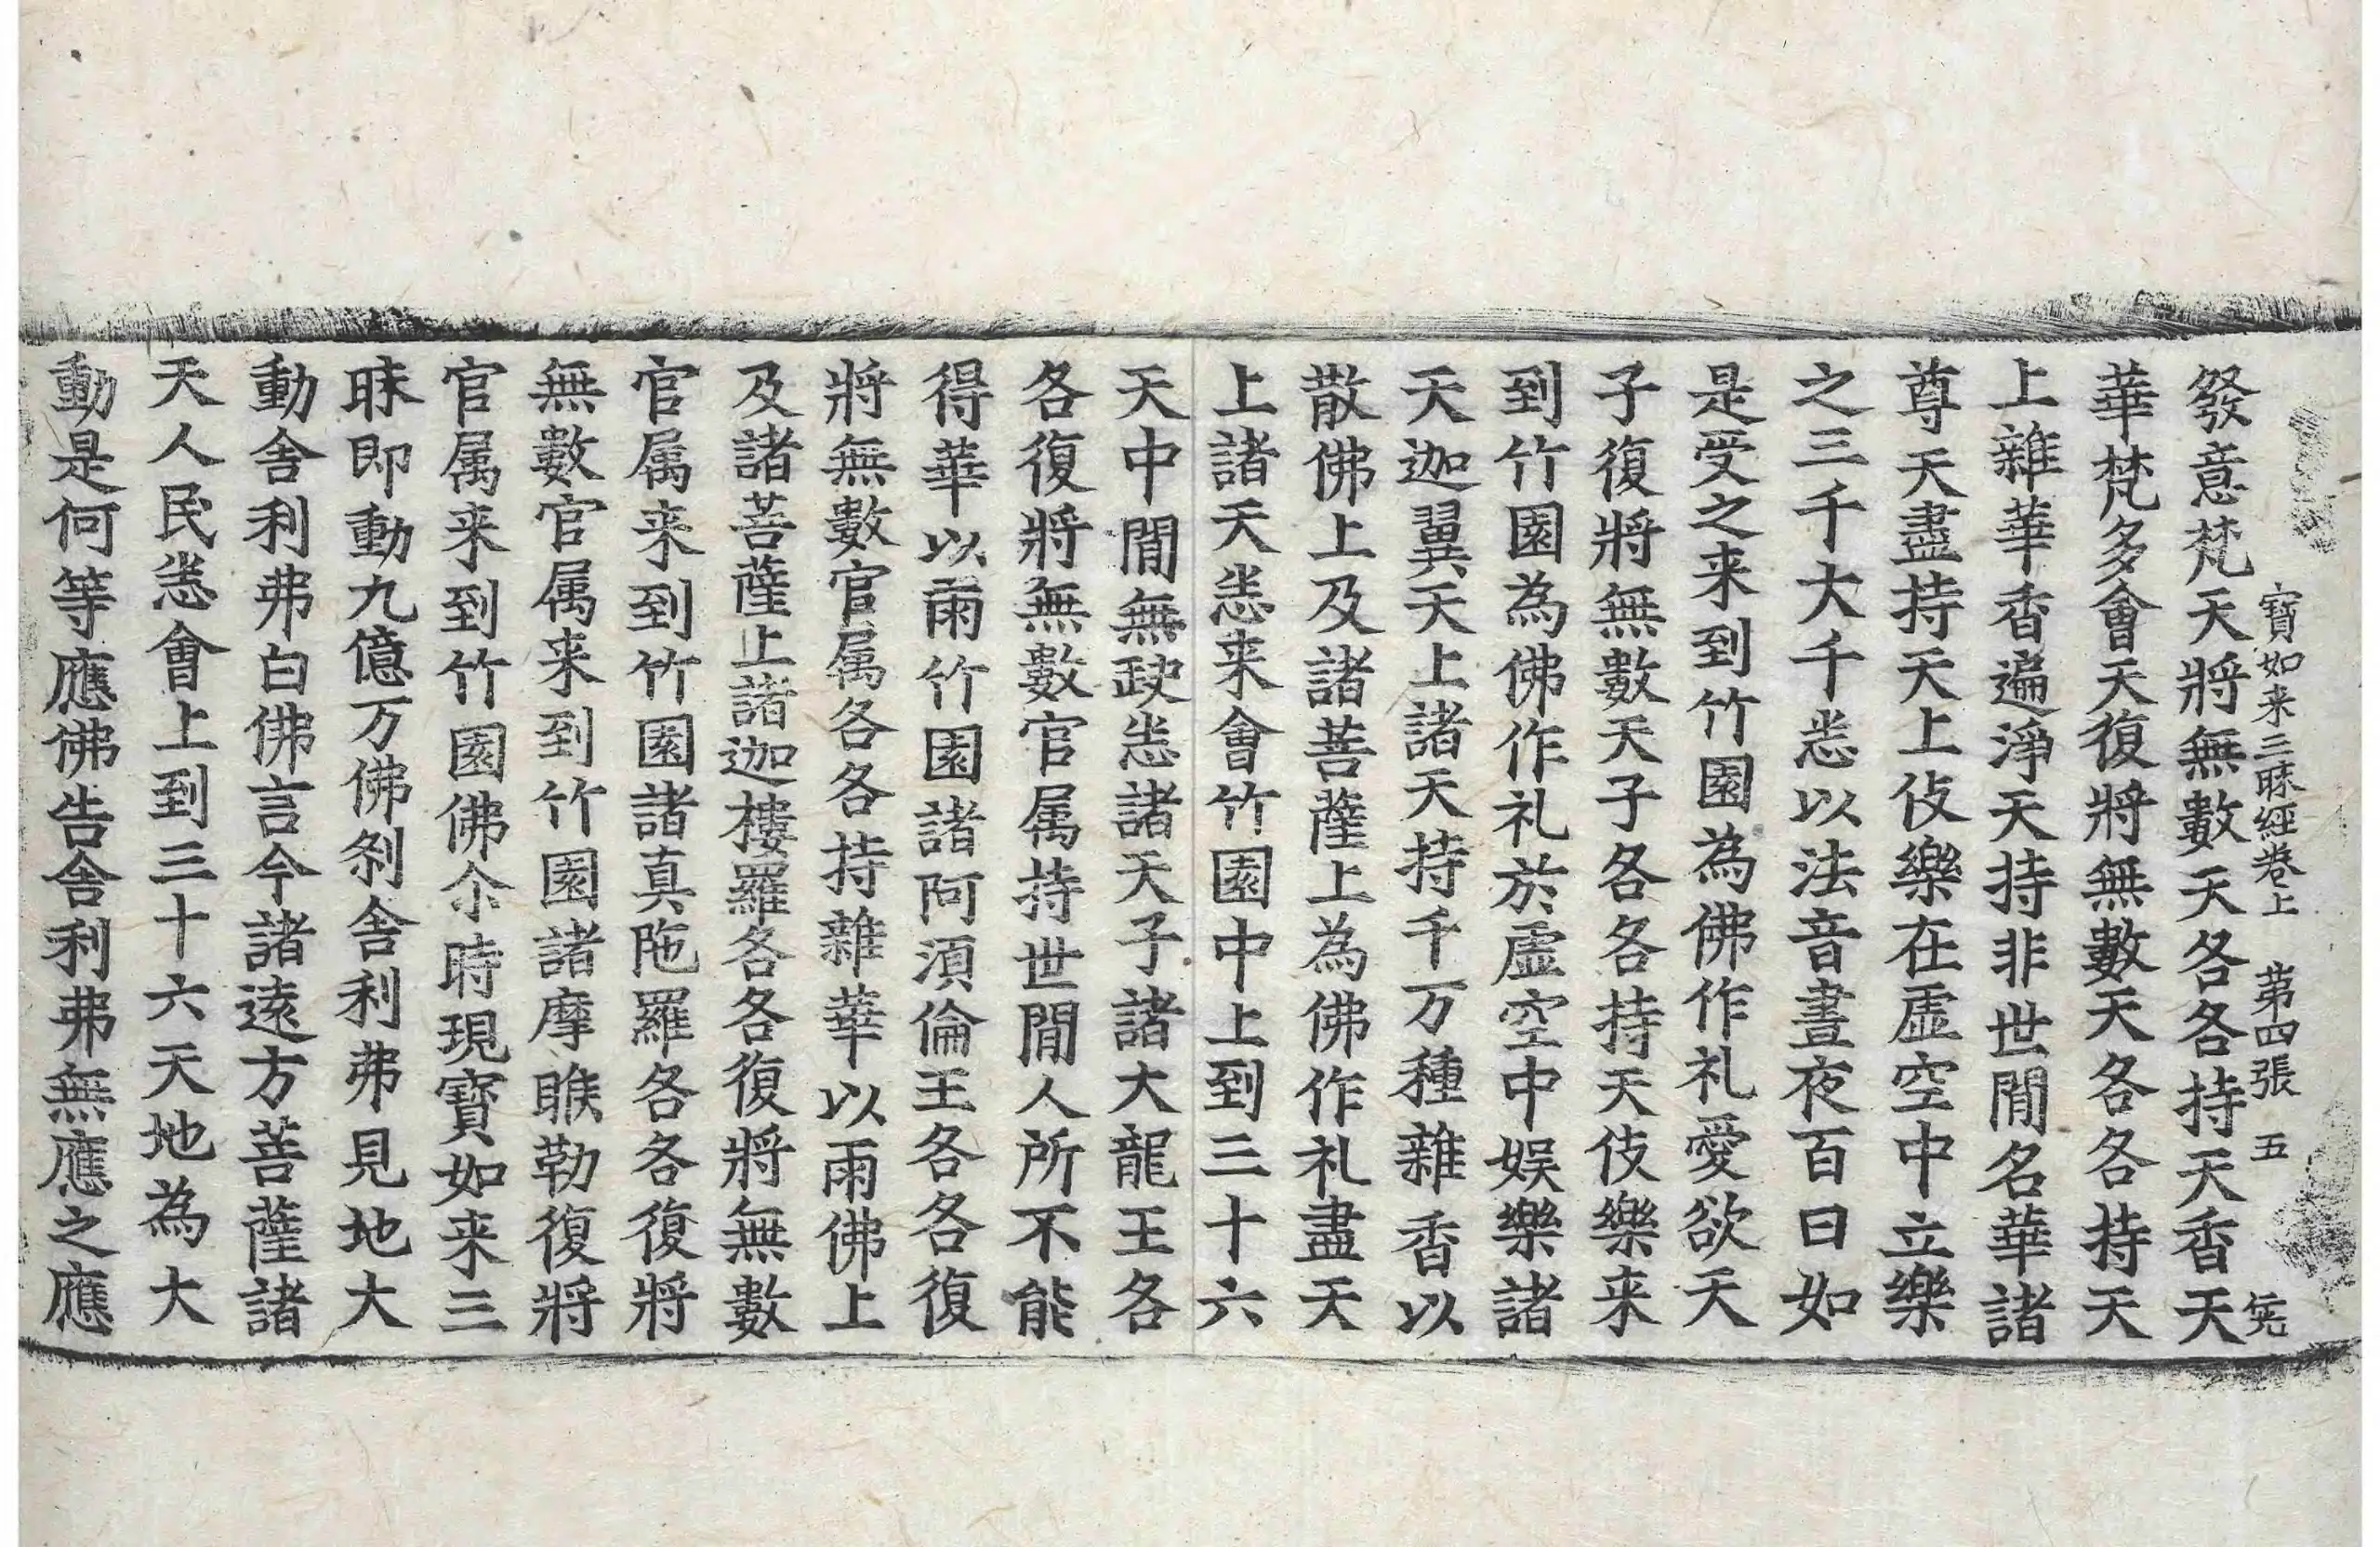 寶如来三昧經卷上 第四張 五
發意梵天將無數天各各持天香天
華梵多會天復將無數天各各持天
上雜華香遍淨天持非世閒名華諸
尊天盡持天上伎樂在虛空中立樂
之三千大千悉以法音晝夜百日如
是受之来到竹園為佛作礼愛欲天
子復將無數天子各各持天伎樂来
到竹園為佛作礼於虛空中娱樂諸
天迦翼天上諸天持千万種雜香以
散佛上及諸菩薩上為佛作礼盡天
上諸天悉来會竹園中上到三十六
天中閒無缺悉諸天子諸大龍王各
各復將無數官属持世閒人所不能
得華以雨竹園諸阿湏倫王各各復
將無數官属各各持雜華以雨佛上
及諸菩薩上諸迦樓羅各各復將無數
官属来到竹園諸真陁羅各各復將
無數官属来到竹園諸摩睺勒復將
官属来到竹園佛尒時現寶如来三
昧即動九億万佛刹舍利弗見地大
動舍利弗白佛言今諸遠方菩薩諸
天人民悉會上到三十六天天地為大
動是何等應佛告舍利弗無應之應